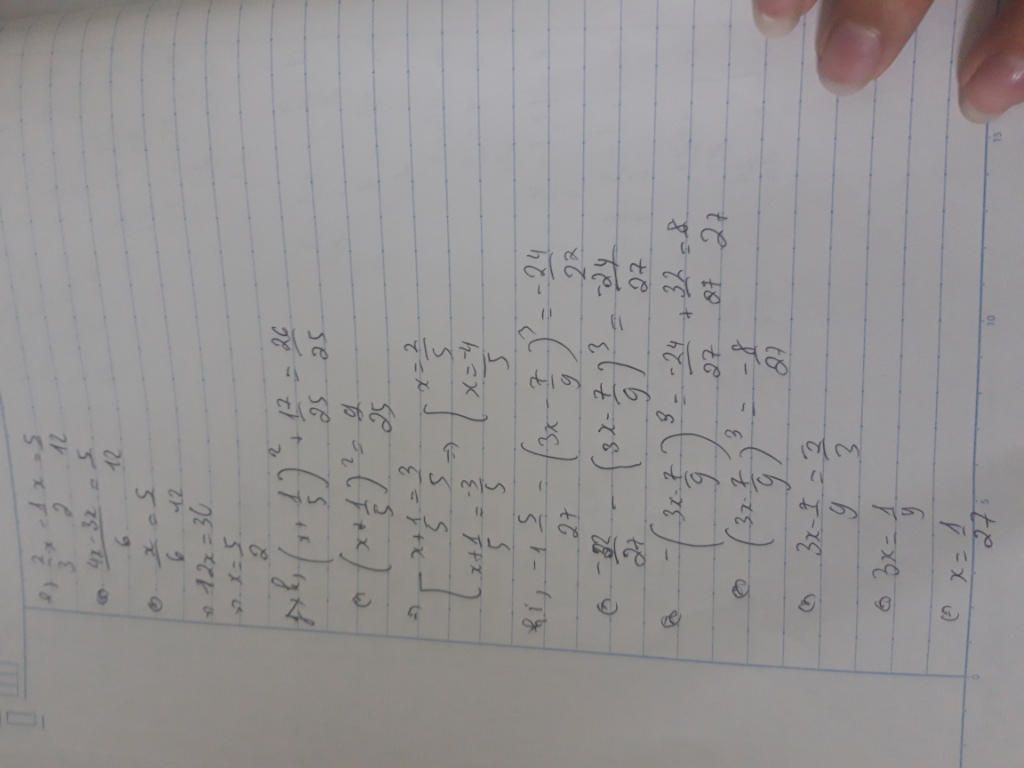 e, 2/3 x - 1/2 x = 5/12
⇔ (4x - 3x)/6 = 5/12
⇔ x/6 = 5/12
⇒ 12x = 30
⇒ x = 5/2
(x + 1/5)² + 17/25 = 26/25
⇔ (x + 1/5)² = 9/25
⇒ [ x + 1/5 = 3/5 ⇒ [ x = 2/5
[ x + 1/5 = -3/5 [ x = -4/5
i, -1 5/27 - (3x - 7/9)³ = -24/27
⇔ -32/27 - (3x - 7/9)³ = -24/27
⇔ -(3x - 7/9)³ = -24/27 + 32/27 = 8/27
⇔ (3x - 7/9)³ = -8/27
⇔ 3x - 7/9 = 2/3
⇔ 3x = 1/9
⇔ x = 1/27